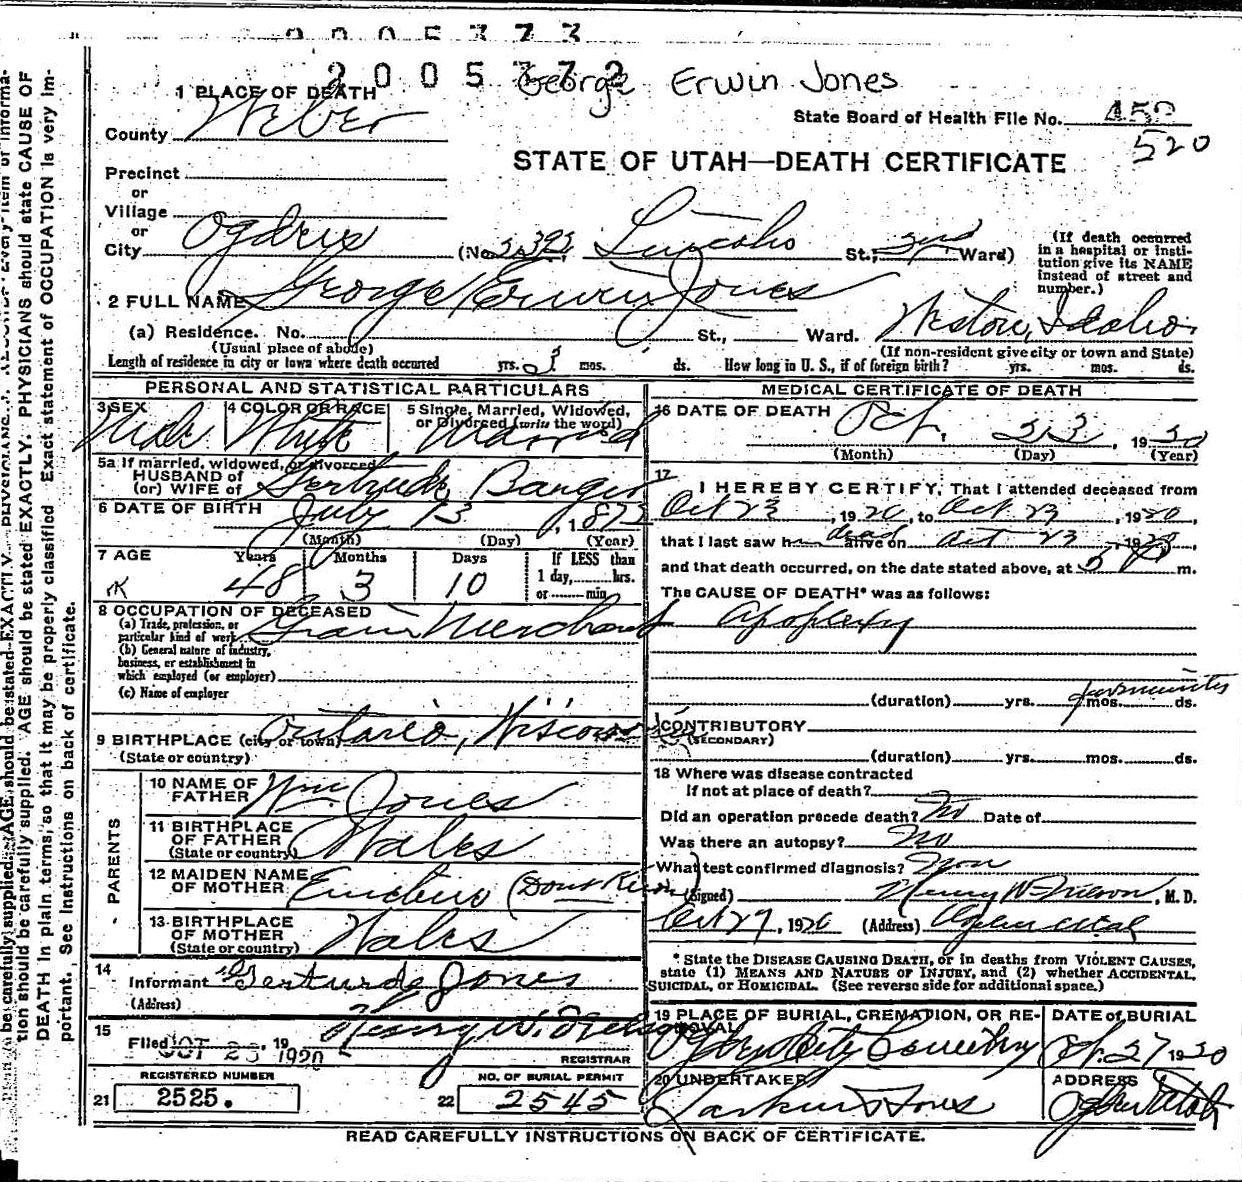 2005373
2005372 George Erwin Jones
1 PLACE OF DEATH
County Weber
State Board of Health File No. 452
520
STATE OF UTAH—DEATH CERTIFICATE
Precinct
or
Village
or
City Ogden (No. 2393 Lincoln St.; 2nd Ward)
(If death occurred in a hospital or institution give its NAME instead of street and number.)
2 FULL NAME George Erwin Jones
(a) Residence. No. St., Ward. Weston, Idaho.
(Usual place of abode) (If non-resident give city or town and State)
Length of residence in city or town where death occurred yrs. 3 mos. ds. How long in U. S., if of foreign birth? yrs. mos. ds.
PERSONAL AND STATISTICAL PARTICULARS
3 SEX Male
4 COLOR OR RACE White
5 Single, Married, Widowed, or Divorced (write the word) Married
5a If married, widowed, or divorced
HUSBAND of
(or) WIFE of Gertrude
6 DATE OF BIRTH July 13, 187
(Month) (Day) (Year)
7 AGE Years 48 Months 3 Days 10 If LESS than
1 day, hrs.
or min.
8 OCCUPATION OF DECEASED
(a) Trade, profession, or
particular kind of work Grain Merchant
(b) General nature of industry,
business, or establishment in
which employed (or employer)
(c) Name of employer
9 BIRTHPLACE (city or town) Ontario, Wisconsin
(State or country)
PARENTS
10 NAME OF FATHER Wm Jones
11 BIRTHPLACE OF FATHER (State or country) Wales
12 MAIDEN NAME OF MOTHER (Dont Know)
13 BIRTHPLACE OF MOTHER (State or country) Wales
14
Informant Gerturde Jones
(Address)
15
Filed OCT 25 1920, 19 Henry W. Nelson
REGISTRAR
REGISTERED NUMBER
21 2525.
NO. OF BURIAL PERMIT
22 2545
MEDICAL CERTIFICATE OF DEATH
16 DATE OF DEATH Oct, 23, 1920
(Month) (Day) (Year)
17
I HEREBY CERTIFY, That I attended deceased from
Oct 23, 1920, to Oct 23, 1920,
that I last saw h dead alive on Oct 23, 1920,
and that death occurred, on the date stated above, at 5 m.
The CAUSE OF DEATH* was as follows:
Apoplexy
(duration) yrs. mos. ds. few minutes
CONTRIBUTORY
(SECONDARY)
(duration) yrs. mos. ds.
18 Where was disease contracted
If not at place of death?
Did an operation precede death? No Date of
Was there an autopsy? No
What test confirmed diagnosis? Non
(Signed) Henry W. Nelson, M. D.
Oct 27, 1920 (Address) Ogden Utah
* State the DISEASE CAUSING DEATH, or in deaths from VIOLENT CAUSES,
state (1) MEANS AND NATURE OF INJURY, and (2) whether ACCIDENTAL,
SUICIDAL, or HOMICIDAL. (See reverse side for additional space.)
19 PLACE OF BURIAL, CREMATION, OR REMOVAL Ogden City Cemetery
DATE of BURIAL Oct. 27 1920
20 UNDERTAKER Larkin & Sons
ADDRESS Ogden Utah
READ CAREFULLY INSTRUCTIONS ON BACK OF CERTIFICATE.
be carefully supplied. AGE should be stated EXACTLY.
tion should be carefully supplied. AGE should be stated EXACTLY. PHYSICIANS should state CAUSE OF
DEATH in plain terms, so that it may be properly classified. Exact statement of OCCUPATION is very im-
portant. See Instructions on back of certificate.